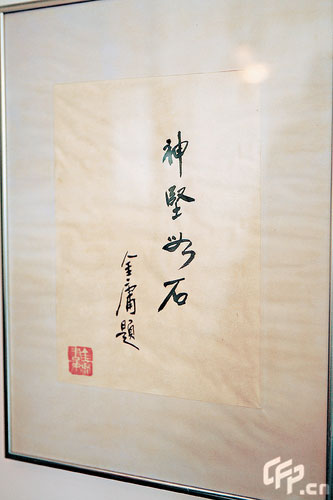 神堅如石
金庸題
CFP.cn